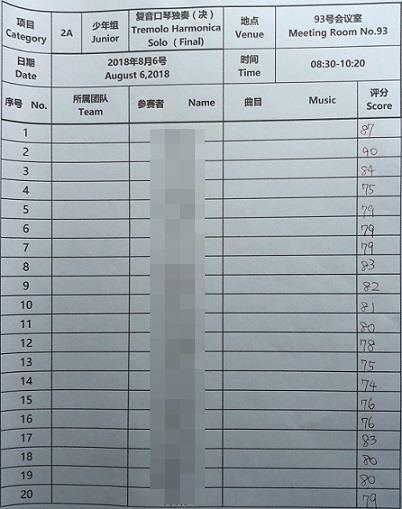 项目 Category 2A 少年组 Junior 复音口琴独奏（决） Tremolo Harmonica Solo （Final） 地点 Venue 93号会议室 Meeting Room No.93
日期 Date 2018年8月6号 August 6,2018 时间 Time 08:30-10:20
序号 No. 所属团队 Team 参赛者 Name 曲目 Music 评分 Score
1 87
2 90
3 84
4 75
5 79
6 79
7 79
8 83
9 82
10 81
11 80
12 78
13 75
14 74
15 76
16 76
17 83
18 80
19 80
20 79